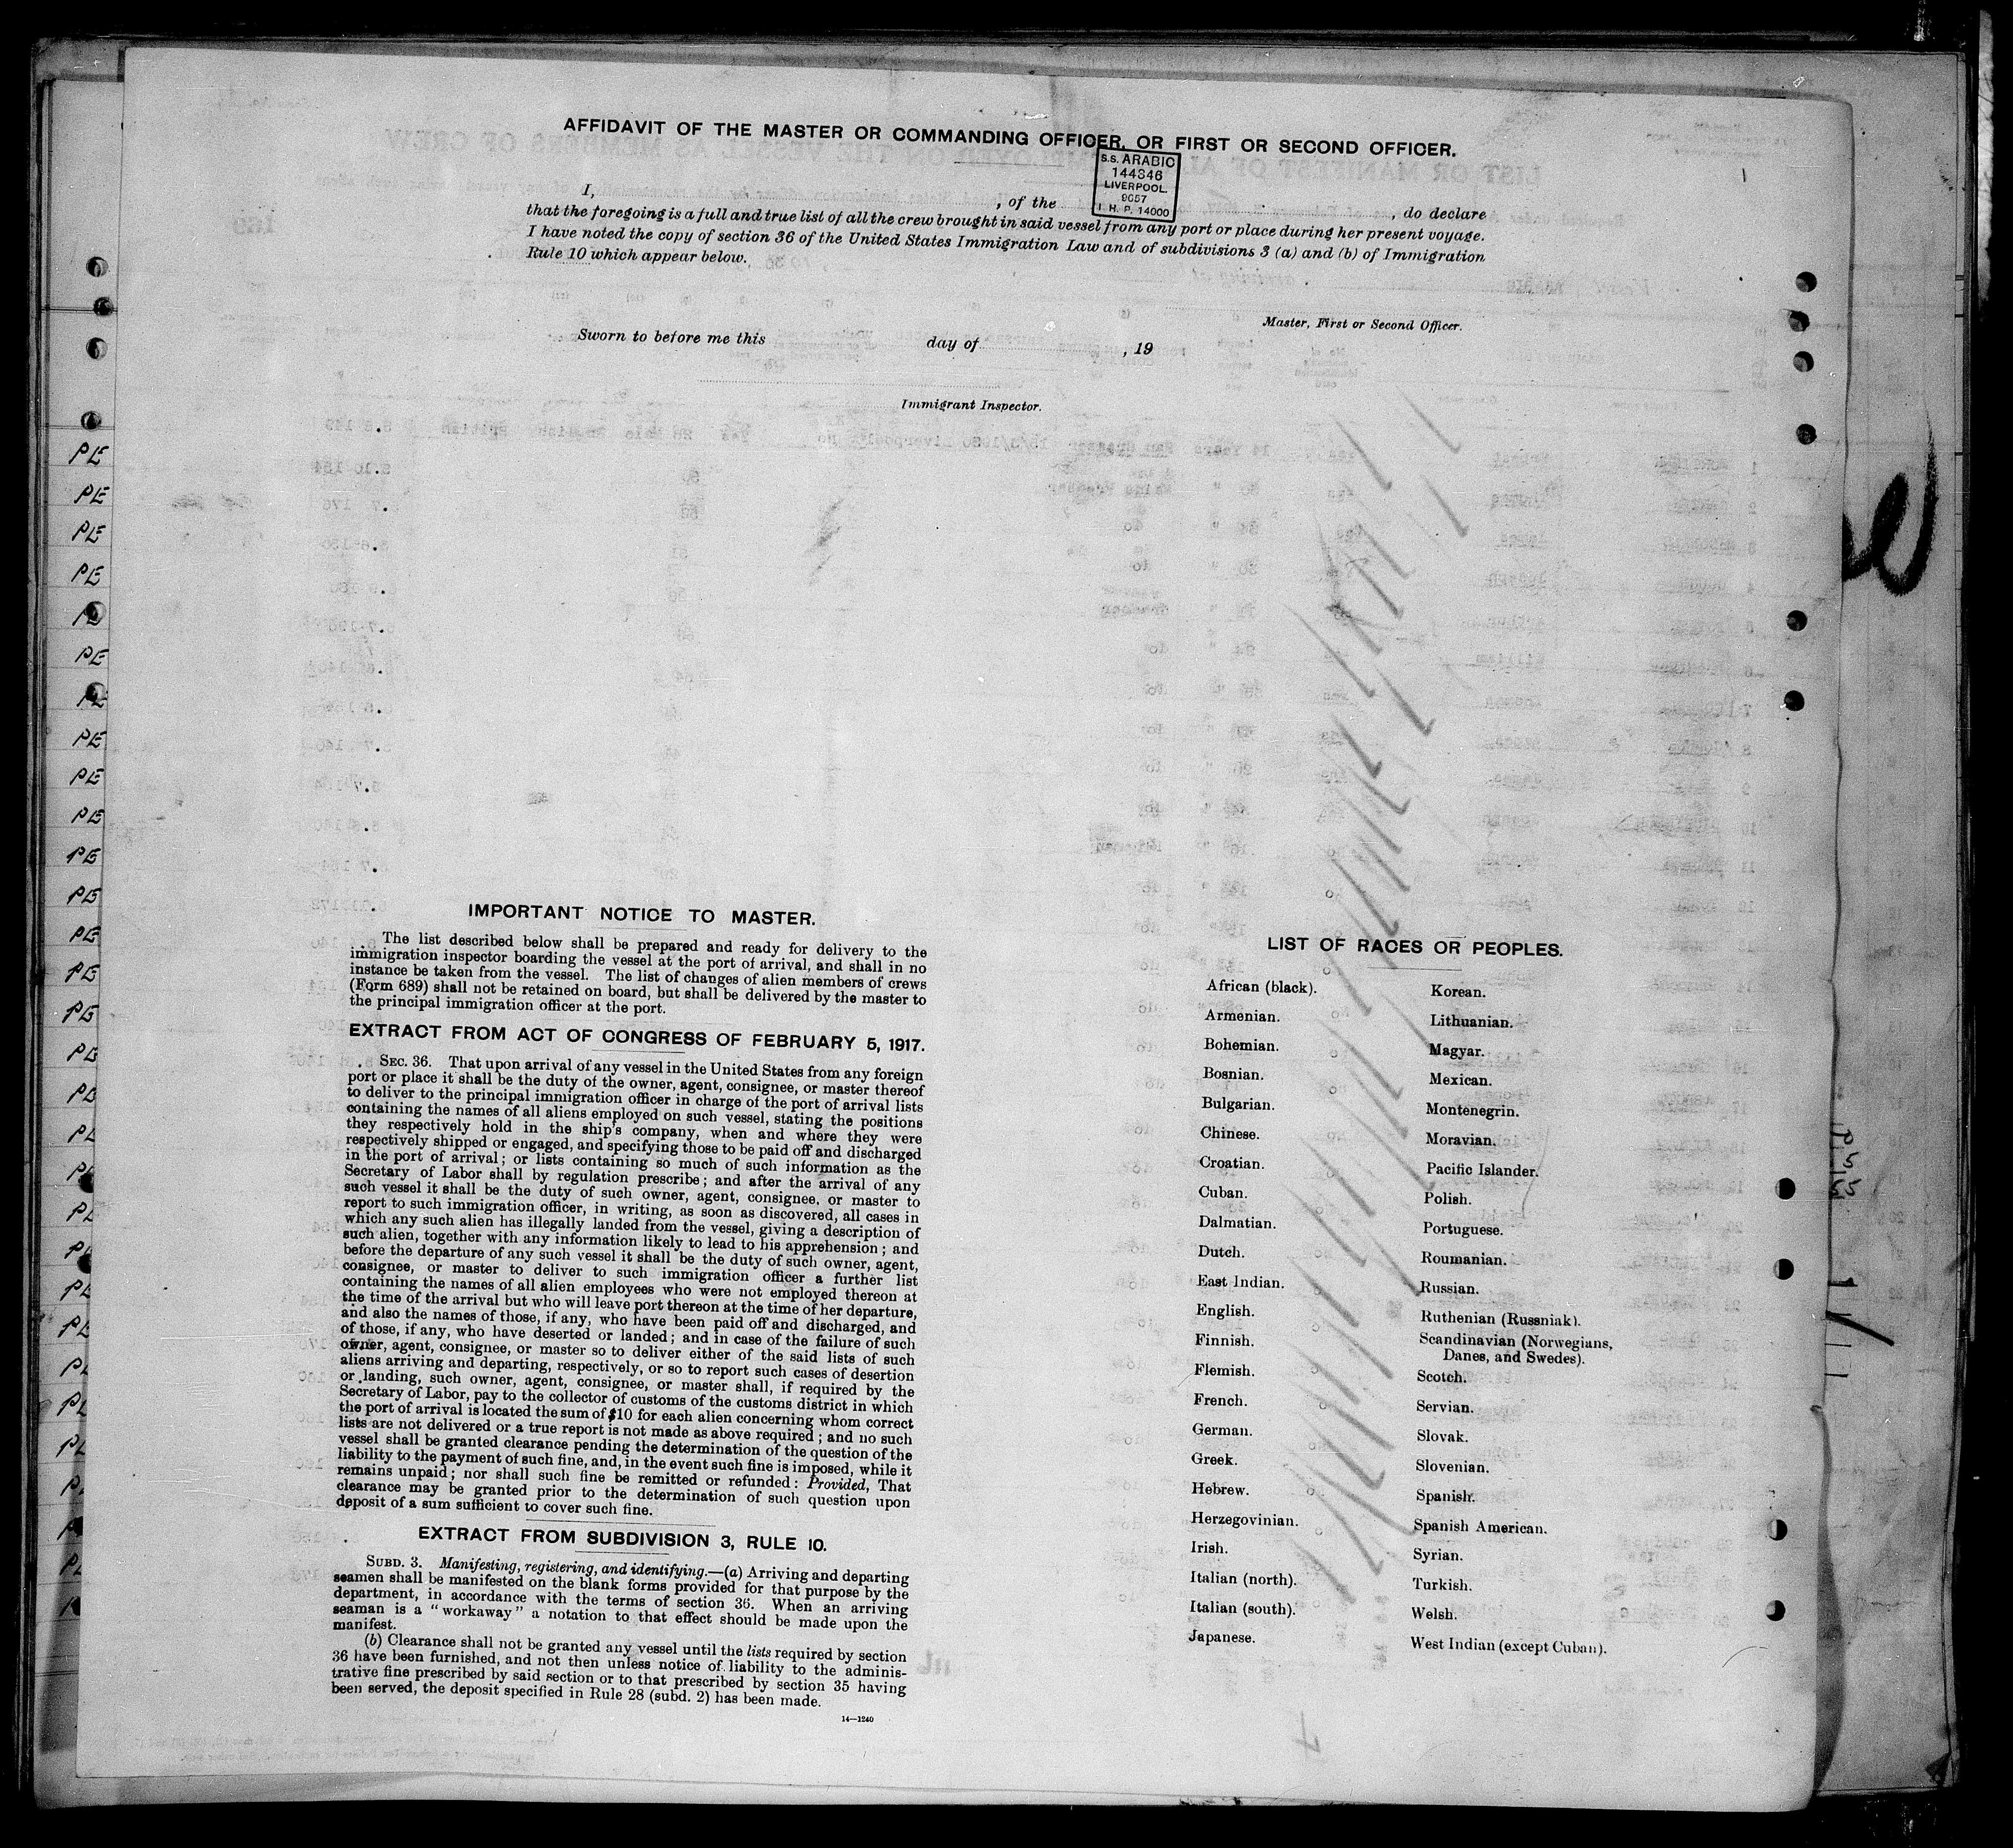 AFFIDAVIT OF THE MASTER OR COMMANDING OFFICER, OR FIRST OR SECOND OFFICER.
S.S. ARABIC
144346
LIVERPOOL
9057
I. H. P. 14000
I, , of the , do declare
that the foregoing is a full and true list of all the crew brought in said vessel from any port or place during her present voyage.
I have noted the copy of section 36 of the United States Immigration Law and of subdivisions 3 (a) and (b) of Immigration
Rule 10 which appear below.
Master, First or Second Officer.
Sworn to before me this day of , 19
Immigrant Inspector.
PE
PE
PE
PE
PE
PE
PE
PE
PE
PE
PE
PE
PE
PE
PE
IMPORTANT NOTICE TO MASTER.
The list described below shall be prepared and ready for delivery to the
immigration inspector boarding the vessel at the port of arrival, and shall in no
instance be taken from the vessel. The list of changes of alien members of crews
(Form 689) shall not be retained on board, but shall be delivered by the master to
the principal immigration officer at the port.
EXTRACT FROM ACT OF CONGRESS OF FEBRUARY 5, 1917.
SEC. 36. That upon arrival of any vessel in the United States from any foreign
port or place it shall be the duty of the owner, agent, consignee, or master thereof
to deliver to the principal immigration officer in charge of the port of arrival lists
containing the names of all aliens employed on such vessel, stating the positions
they respectively hold in the ship's company, when and where they were
respectively shipped or engaged, and specifying those to be paid off and discharged
in the port of arrival; or lists containing so much of such information as the
Secretary of Labor shall by regulation prescribe; and after the arrival of any
such vessel it shall be the duty of such owner, agent, consignee, or master to
report to such immigration officer, in writing, as soon as discovered, all cases in
which any such alien has illegally landed from the vessel, giving a description of
such alien, together with any information likely to lead to his apprehension; and
before the departure of any such vessel it shall be the duty of such owner, agent,
consignee, or master to deliver to such immigration officer a further list
containing the names of all alien employees who were not employed thereon at
the time of the arrival but who will leave port thereon at the time of her departure,
and also the names of those, if any, who have been paid off and discharged, and
of those, if any, who have deserted or landed; and in case of the failure of such
owner, agent, consignee, or master so to deliver either of the said lists of such
aliens arriving and departing, respectively, or so to report such cases of desertion
or landing, such owner, agent, consignee, or master shall, if required by the
Secretary of Labor, pay to the collector of customs of the customs district in which
the port of arrival is located the sum of $10 for each alien concerning whom correct
lists are not delivered or a true report is not made as above required; and no such
vessel shall be granted clearance pending the determination of the question of the
liability to the payment of such fine, and, in the event such fine is imposed, while it
remains unpaid; nor shall such fine be remitted or refunded: Provided, That
clearance may be granted prior to the determination of such question upon
deposit of a sum sufficient to cover such fine.
EXTRACT FROM SUBDIVISION 3, RULE 10.
SUBD. 3. Manifesting, registering, and identifying.—(a) Arriving and departing
seamen shall be manifested on the blank forms provided for that purpose by the
department, in accordance with the terms of section 36. When an arriving
seaman is a "workaway" a notation to that effect should be made upon the
manifest.
(b) Clearance shall not be granted any vessel until the lists required by section
36 have been furnished, and not then unless notice of liability to the adminis-
trative fine prescribed by said section or to that prescribed by section 35 having
been served, the deposit specified in Rule 28 (subd. 2) has been made.
14—1240
LIST OF RACES OR PEOPLES.
African (black).
Armenian.
Bohemian.
Bosnian.
Bulgarian.
Chinese.
Croatian.
Cuban.
Dalmatian.
Dutch.
East Indian.
English.
Finnish.
Flemish.
French.
German.
Greek.
Hebrew.
Herzegovinian.
Irish.
Italian (north).
Italian (south).
Japanese.
Korean.
Lithuanian.
Magyar.
Mexican.
Montenegrin.
Moravian.
Pacific Islander.
Polish.
Portuguese.
Roumanian.
Russian.
Ruthenian (Russniak).
Scandinavian (Norwegians,
Danes, and Swedes).
Scotch.
Servian.
Slovak.
Slovenian.
Spanish.
Spanish American.
Syrian.
Turkish.
Welsh.
West Indian (except Cuban).